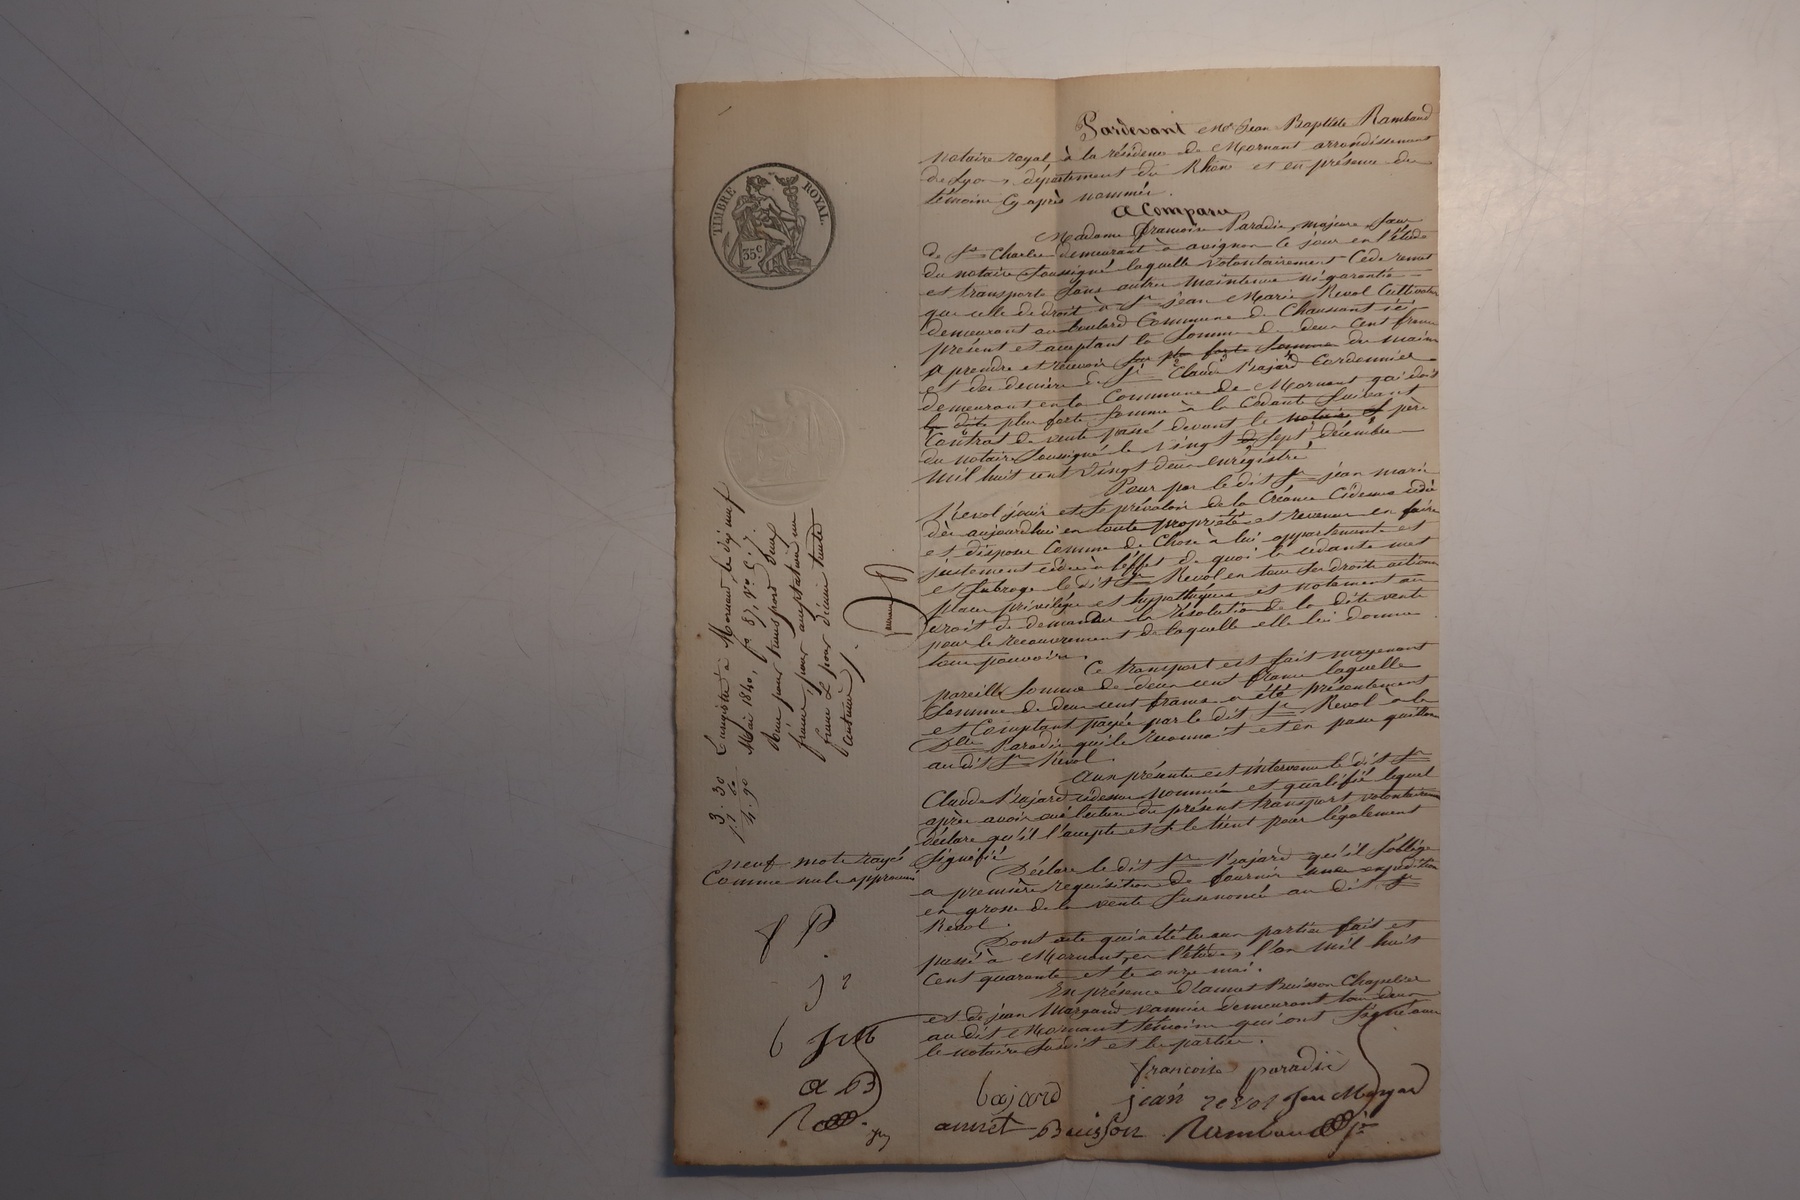 TIMBRE ROYAL.
35 c.
Pardevant Me Jean Baptiste Rambaud
notaire royal à la résidence de Mornant arrondissement
de Lyon, département du Rhône et en présence des
témoins cy après nommés.
A Comparu
Madame francoise Paradis, majeure, sœur
de St Charles demeurant à avignon ce jour en l'étude
du notaire soussigné laquelle volontairement Cède remet
et transporte sans autre maintenue ni garantie
que celle de droit à Sr jean Marie Revol Cultivateur
demeurant au boulard Commune de Chaussant ici
présent et acceptant la somme de deux cent francs
a prendre et recevoir sur plus forte somme des mains
et des deniers de Sr Claude Bajard Cordonnier
demeurant en la Commune de Mornant qui doit
la dite plus forte somme à la Cédante suivant
Contrat de vente passé devant le notaire père
du notaire soussigné le vingt sept décembre
mil huit cent vingt deux enregistré
Pour par le dit Sr jean marie
Revol jouir et se prévaloir de la Créance Cidessus cédée
dès aujourdhui en toute propriété et revenus en faire
et disposer Comme de Chose à lui appartenante et
justement cédée à l'effet de quoi la cédante met
et subroge le dit Sr Revol en tous ses droits actions
places privilèges et hypothèques et notament au
droit de demander la résolution de la dite vente
pour le recouvrement de laquelle elle lui donne
tous pouvoirs.
Ce transport est fait moyenant
pareille somme de deux cent francs laquelle
somme de deux cent francs a été présentement
et Comptant payée par le dit Sr Revol à la
Dlle Paradis qui le reconnait et en passe quittance
au dit Sr Revol.
Aux présentes est intervenu le dit Sr
Claude Bajard cidessus nommé et qualifié lequel
après avoir oui lecture du présent transport volontairement
déclare qu'il l'accepte et se le tient pour légalement
signifié
Déclare le dit Sr Bajard qu'il s'oblige
a première réquisition de fournir une expédition
en grosse de la vente susenoncée au dit Sr
Revol.
Dont acte qui a été lu aux parties fait et
passé à Mornant, en l'étude, l'an mil huit
Cent quarante et le onze mai.
En présence d'amet Buisson Chapelier
et de jean Margand vannier demeurant tous deux
au dit Mornant témoins qui ont signé avec
le notaire susdit et les parties.
francoise paradis
bajard jean revol Jean Margand
amet Buisson Rambaud jr
Enregistré à Mornant, le dix neuf
Mai 1840, fo 87, Vo C. 7.
Reçu pour transport deux
francs, pour acceptation un
franc & pour décime trente
centimes.
3. 30
1. 60
4. 90
neuf mots rayés
Comme nuls approuvés
f P
j r
b J M
a B